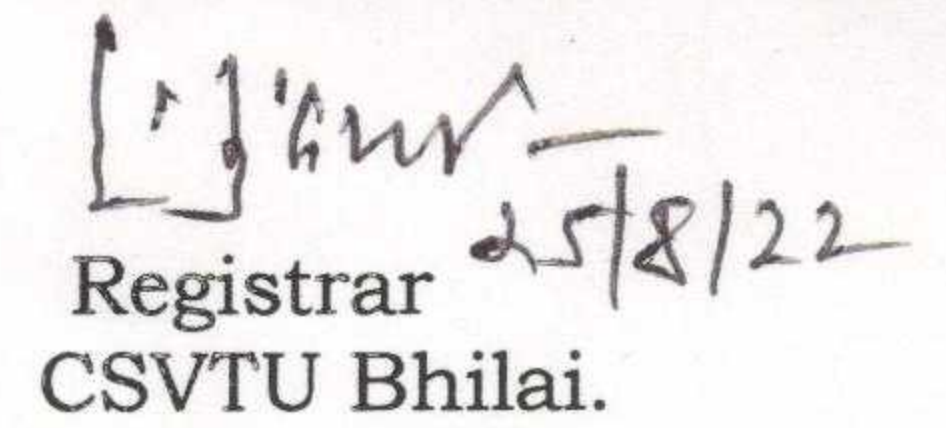 25/8/22
Registrar
CSVTU Bhilai.